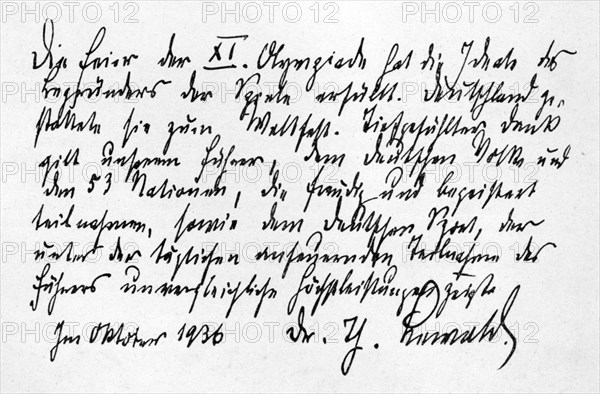 Die Feier der XI. Olympiade hat die Ideale des
Begründers der Spiele erfüllt. Deutschland ge-
staltete sie zum Weltfest. Tiefgefühlter Dank
gilt unserem Führer, dem deutschen Volke und
den 53 Nationen, die freudig und begeistert
teilnahmen, sowie dem deutschen Sport, der
unter der täglichen anfeuernden Teilnahme des
Führers unvergleichliche Höchstleistungen zeigte
Im Oktober 1936 Dr. Th. Lewald.